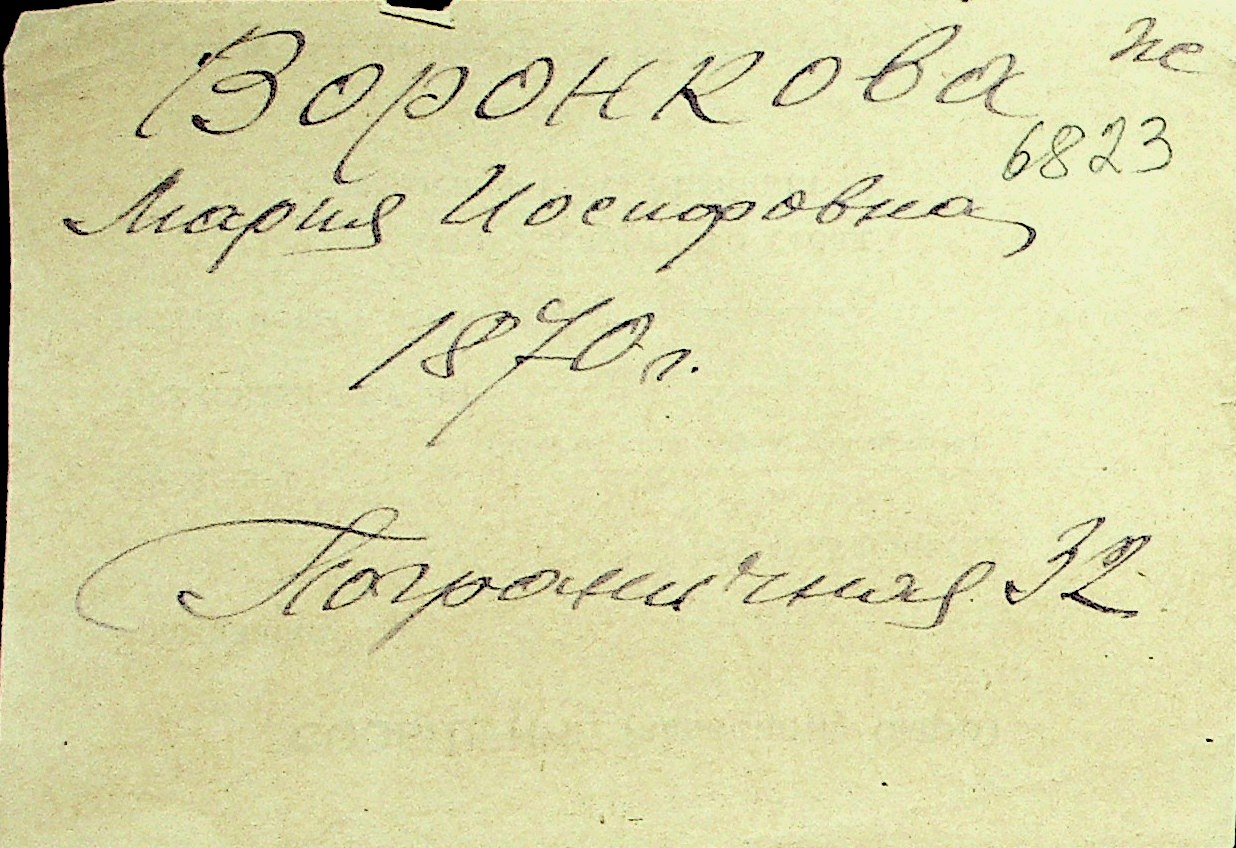 Воронкова
6823
Мария Иосифовна
1870 г.
Пограничная 32